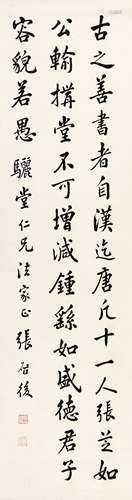 古之善書者自漢迄唐凡十一人張芝如
公輸搆堂不可增減鍾繇如盛德君子
容貌若愚 驪堂仁兄法家正 張啓後